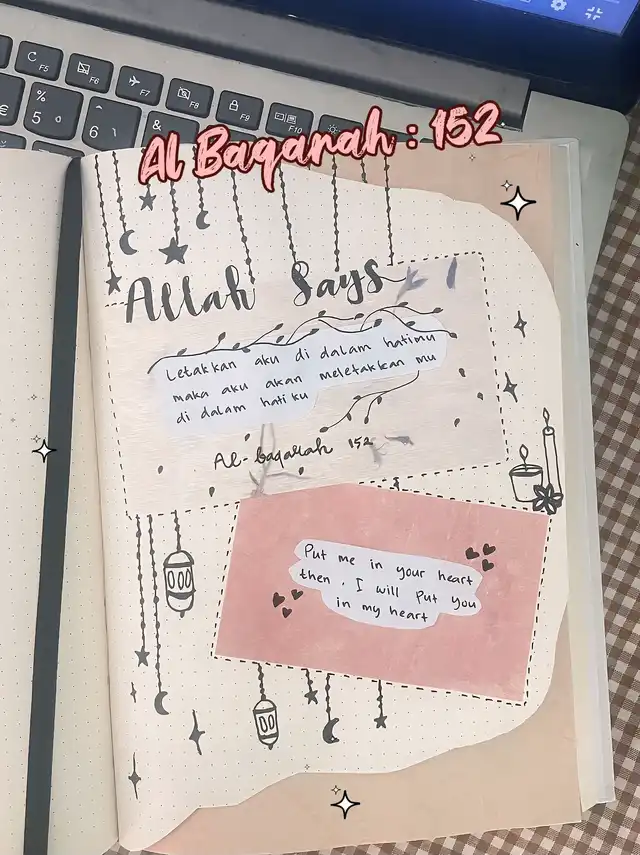 C F5 F6 F7 F8 F9 F10
% 5 6 &
€
Al Baqarah : 152
Allah Says
Letakkan aku di dalam hatimu
maka aku akan meletakkan mu
di dalam hatiku
Al-baqarah 152
Put me in your heart
then, I will put you
in my heart